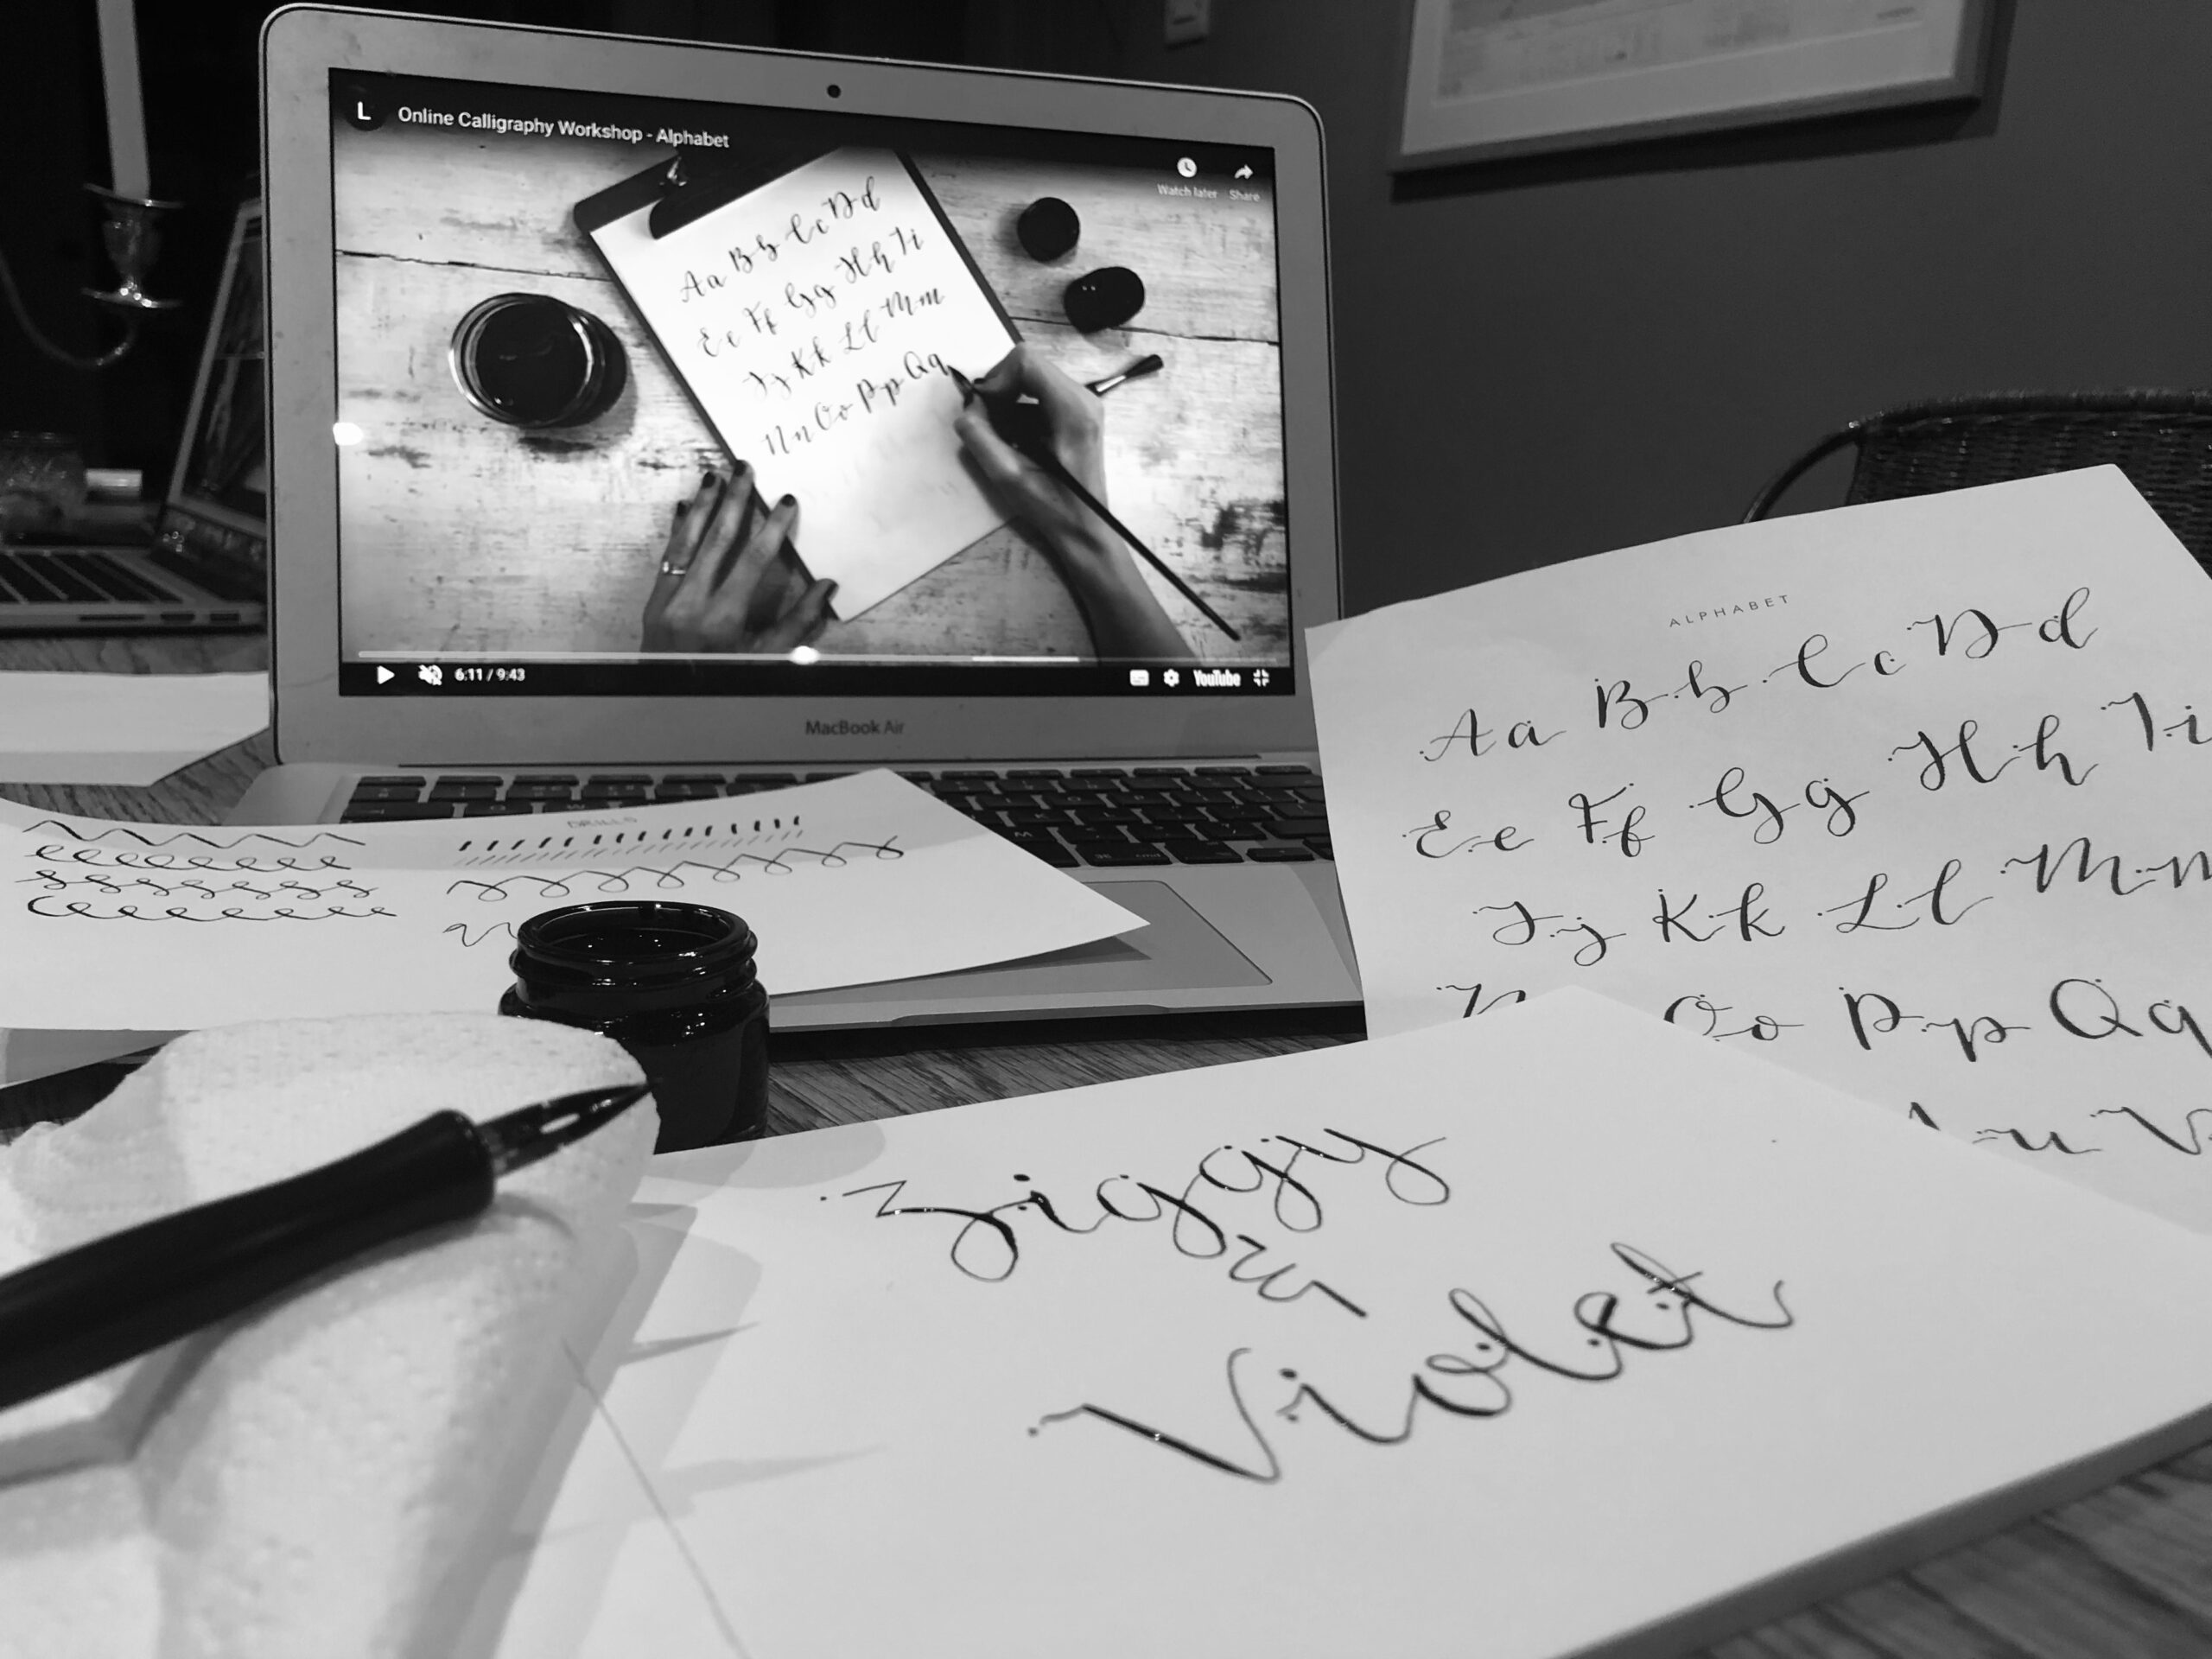 L Online Calligraphy Workshop - Alphabet
Watch later Share
Aa Bb Cc Dd
Ee Ff Gg Hh Ii
Jj Kk Ll Mm
Nn Oo Pp Qq
6:11 / 9:43 YouTube
MacBook Air
DRILLS
ALPHABET
Aa Bb Cc Dd
Ee Ff Gg Hh Ii
Jj Kk Ll Mm
Oo Pp Qq
u V
Ziggy
&
Violet